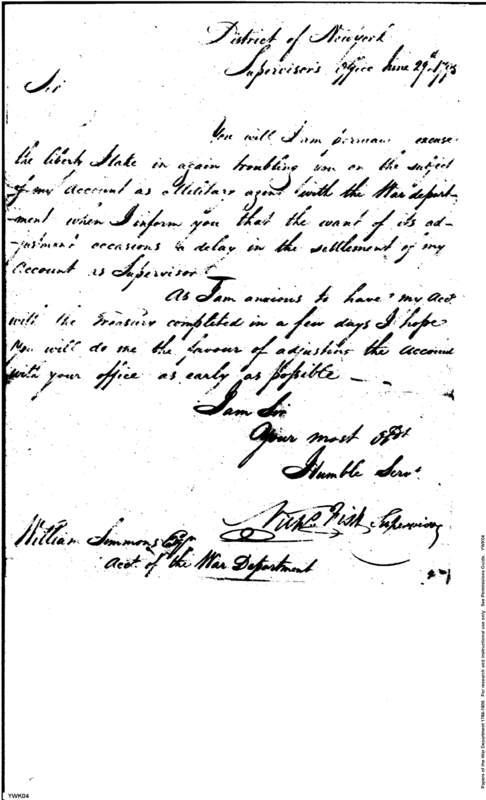 District of Newyork
Supervisor's Office June 29th
Sir
You will I am excuse
the liberty I take in again troubling you on the subject
of my Account as Military agent with the War depart-
ment when I inform you that the want of its ad-
justment occasions a delay in the settlement of my
Account as Supervisor
As I am anxious to have my Acct
with the Treasury completed in a few days I hope
You will do me the favour of adjusting the Account
with your office as early as possible —
I am Sir
Your most Obdt
Humble Servt
Nichs Fish Supervisor
William Simmons Esqr
Acct. of the War Department
YWK04
Papers of the War Department 1784-1800. For research and instructional use only. See Permissions Guide. YWK04